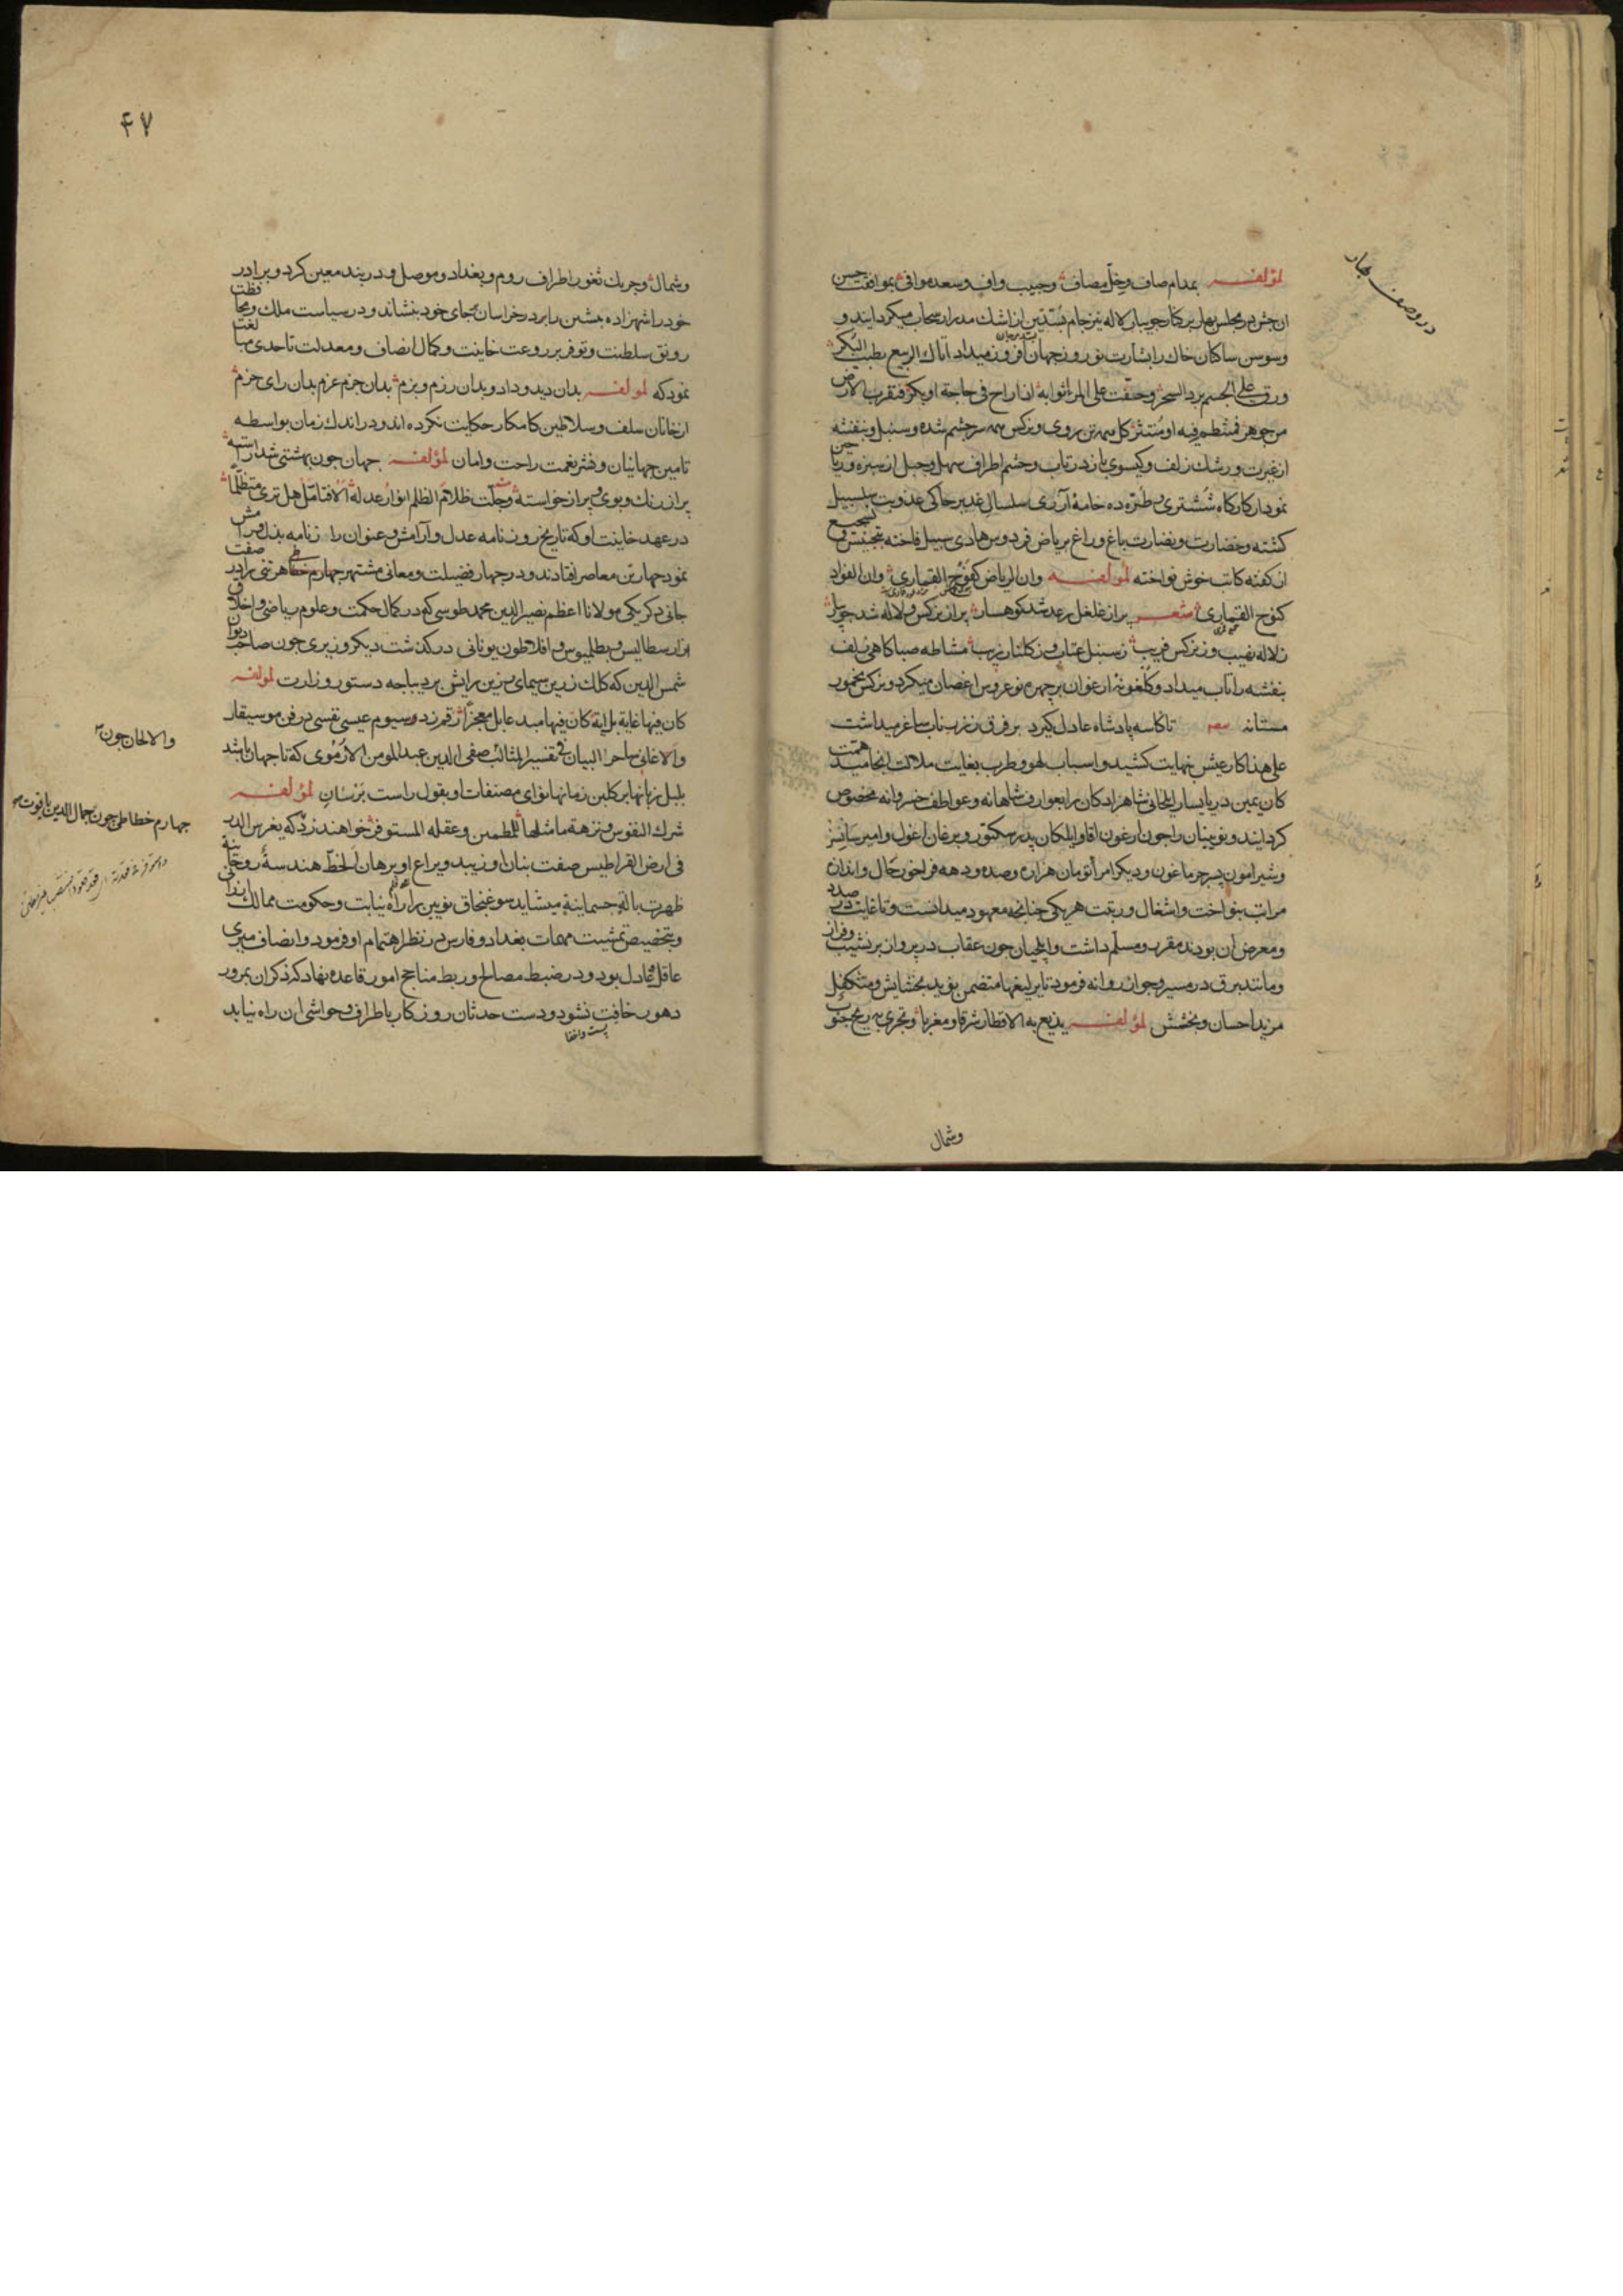 در وصف بهار
لمؤلفه بمدام صاف وخل مصاف وحبیب واف وسعد موافی بموافقت حسن
ان جشن در مجلس بهار بر کنار جویبار لاله نیز جام بسدین از اشك مدرار سحاب میکردانید و
وسوسن ساکنان خاك را بشارت نوروز جهان افروز میداد اتاك الربیع بطیب البکر
ورق علی الجسم برد السحر وخفت علی المرء اثوابه اذا راح فی حاجة او بکر فتقرب الارض
من جوهر فمنتظم فیه او منتثر کل همه تن روی و نرکس همه سر چشم شده وسنبل وبنفشه
از غیرت ورشك زلف وکیسوی یار در تاب وخشم اطراف سهل وجبل از سبزه وریاحین
نمودار کارکاه ششتری وطیره ده خامهٔ آزری سلسال غدیر حاکی عذوبت سلسبیل
کشته وخضارت ونضارت باغ وراغ بریاض فردوس هادی سبیل فاخته بتجنیس وتسجیع
ان کفته کاتب خوش نواخته لمؤلفه وان الریاض کفوح القماری وان الفؤاد
کنوح القماری شعر پر از غلغل رعد شد کوهسار پر از نرکس ولاله شد جویبار
ز لاله نهیب وز نرکس فریب ز سنبل عتاب وز کلنار زیب مشاطه صبا کاهی زلف
بنفشه را تاب میداد وکلغونه ارغوان بر چهره نوعروس اغصان میکرد ونرکس مخمور
مستانه مصر تا کاسه پادشاه عادل کیرد بر فرق ز زر ناب ساغر میداشت
علی هذا کار عیش بنهایت کشید واسباب لهو وطرب بغایت ملالت انجامید همت
کان یمین دریا یسار ایلخانی شاهزادکان را بعوارف شاهانه وعواطف خسروانه مخصوص
کردانید ونویینان را چون ارغون اقا وایلکان پدر سکتور وبرغان اغول وامیر سانسز
وشیرامون پسر جرماغون ودیکر امرأ تومان هزاره وصده ودهه فراخور حال واندازه
مراتب بنواخت واشغال ورتبت هر یکی چنانچه معهود میدانست وتا غایت در صدد
ومعرض ان بودند مقرر ومسلم داشت وایلچیان چون عقاب در پرواز بر نشیب وفراز
ومانند برق در مسیر وجواز روانه فرمود تا یرلیغها متضمن نوید بخشایش ومتکفل
مزید احسان وبخشش لمؤلفه یذیع به الاقطار شرقا ومغربا وتجری به ریح جنوب
وشمال
۴۷
وشمال وجریك ثغور اطراف روم وبغداد وموصل ودربند معین کرد وبرادر
خود را شهزاده بیشین را بر در خراسان بجای خود بنشاند ودر سیاست ملك ومحافظت
رونق سلطنت وتوفر بر روعت خاینت وکمال انصاف ومعدلت تا حدی مبالغت
نمود که لمولفه بدان دید وداد وبدان رزم وبزم بدان جزم عزم بدان رای حزم
از خانان سلف وسلاطین کامکار حکایت نکرده اند ودر اندك زمان بواسطه
تامین جهانیان ونشر نعمت راحت وامان لمؤلفه جهان چون بهشتی شد اراسته
پر از رنك وبوی وپر از خواسته وجلت ظلام الظلم انوار عدله الا فتامل هل تری متظلما
در عهد خاینت او که تاریخ روزنامه عدل وآرامش وعنوان رازنامه بذل ورامش
نمود چهار تن معاصر افتادند ودر چهار فضیلت ومعانی مشتهر چهارم خطاطی هر تنی برادر صفت
جانی دکر یکی مولانا اعظم نصیر الدین محمد طوسی که در کمال حکمت وعلوم ریاضی واخلاق
از ارسطالیس وبطلیموس وافلاطون یونانی در کذشت دیکر وزیری چون صاحب دیوان
شمس الدین که کلك زرین سیمای سزین رایش بر دیباجه دستور وزارت لمؤلفه
کان فیها غایة بل ایة کان فیها مبدعا بل معجزا رقم زد وسیوم عیسی نفسی در فن موسیقار
والالحان چون
والاغانی ساحر البیان فی تفسیر المثالث صفی الدین عبد المومن الارموی که تا جهان باشد
بلبل زبانها بر کلبن زمانها نوای مصنفات او بقول راست بزنسان لمؤلفه
چهارم خطاطی چون جمال الدین یاقوت
شرك النفوس ونزهة ما مثلها للمطمئن وعقلة المستوفز خواهند زد که یغرس الدر
فی ارض القراطیس صفت بنان او زیبد ویراع او برهان الخط هندسة روحانیة
ظهرت بالة جسمانیة میشاید سوغنجاق نویین را راه نیابت وحکومت ممالك ارزانی
وبتخصیص تمشیت مهمات بغداد وفارس در نظر اهتمام او فرمود وانصاف میری
عاقل وعادل بود ودر ضبط مصالح وربط مناجح امور قاعده نهاد که ذکر ان بمرور
دهور خافت نشود ودست حدثان روزکار باطراف وحواشی ان راه نیابد
پست واخفا